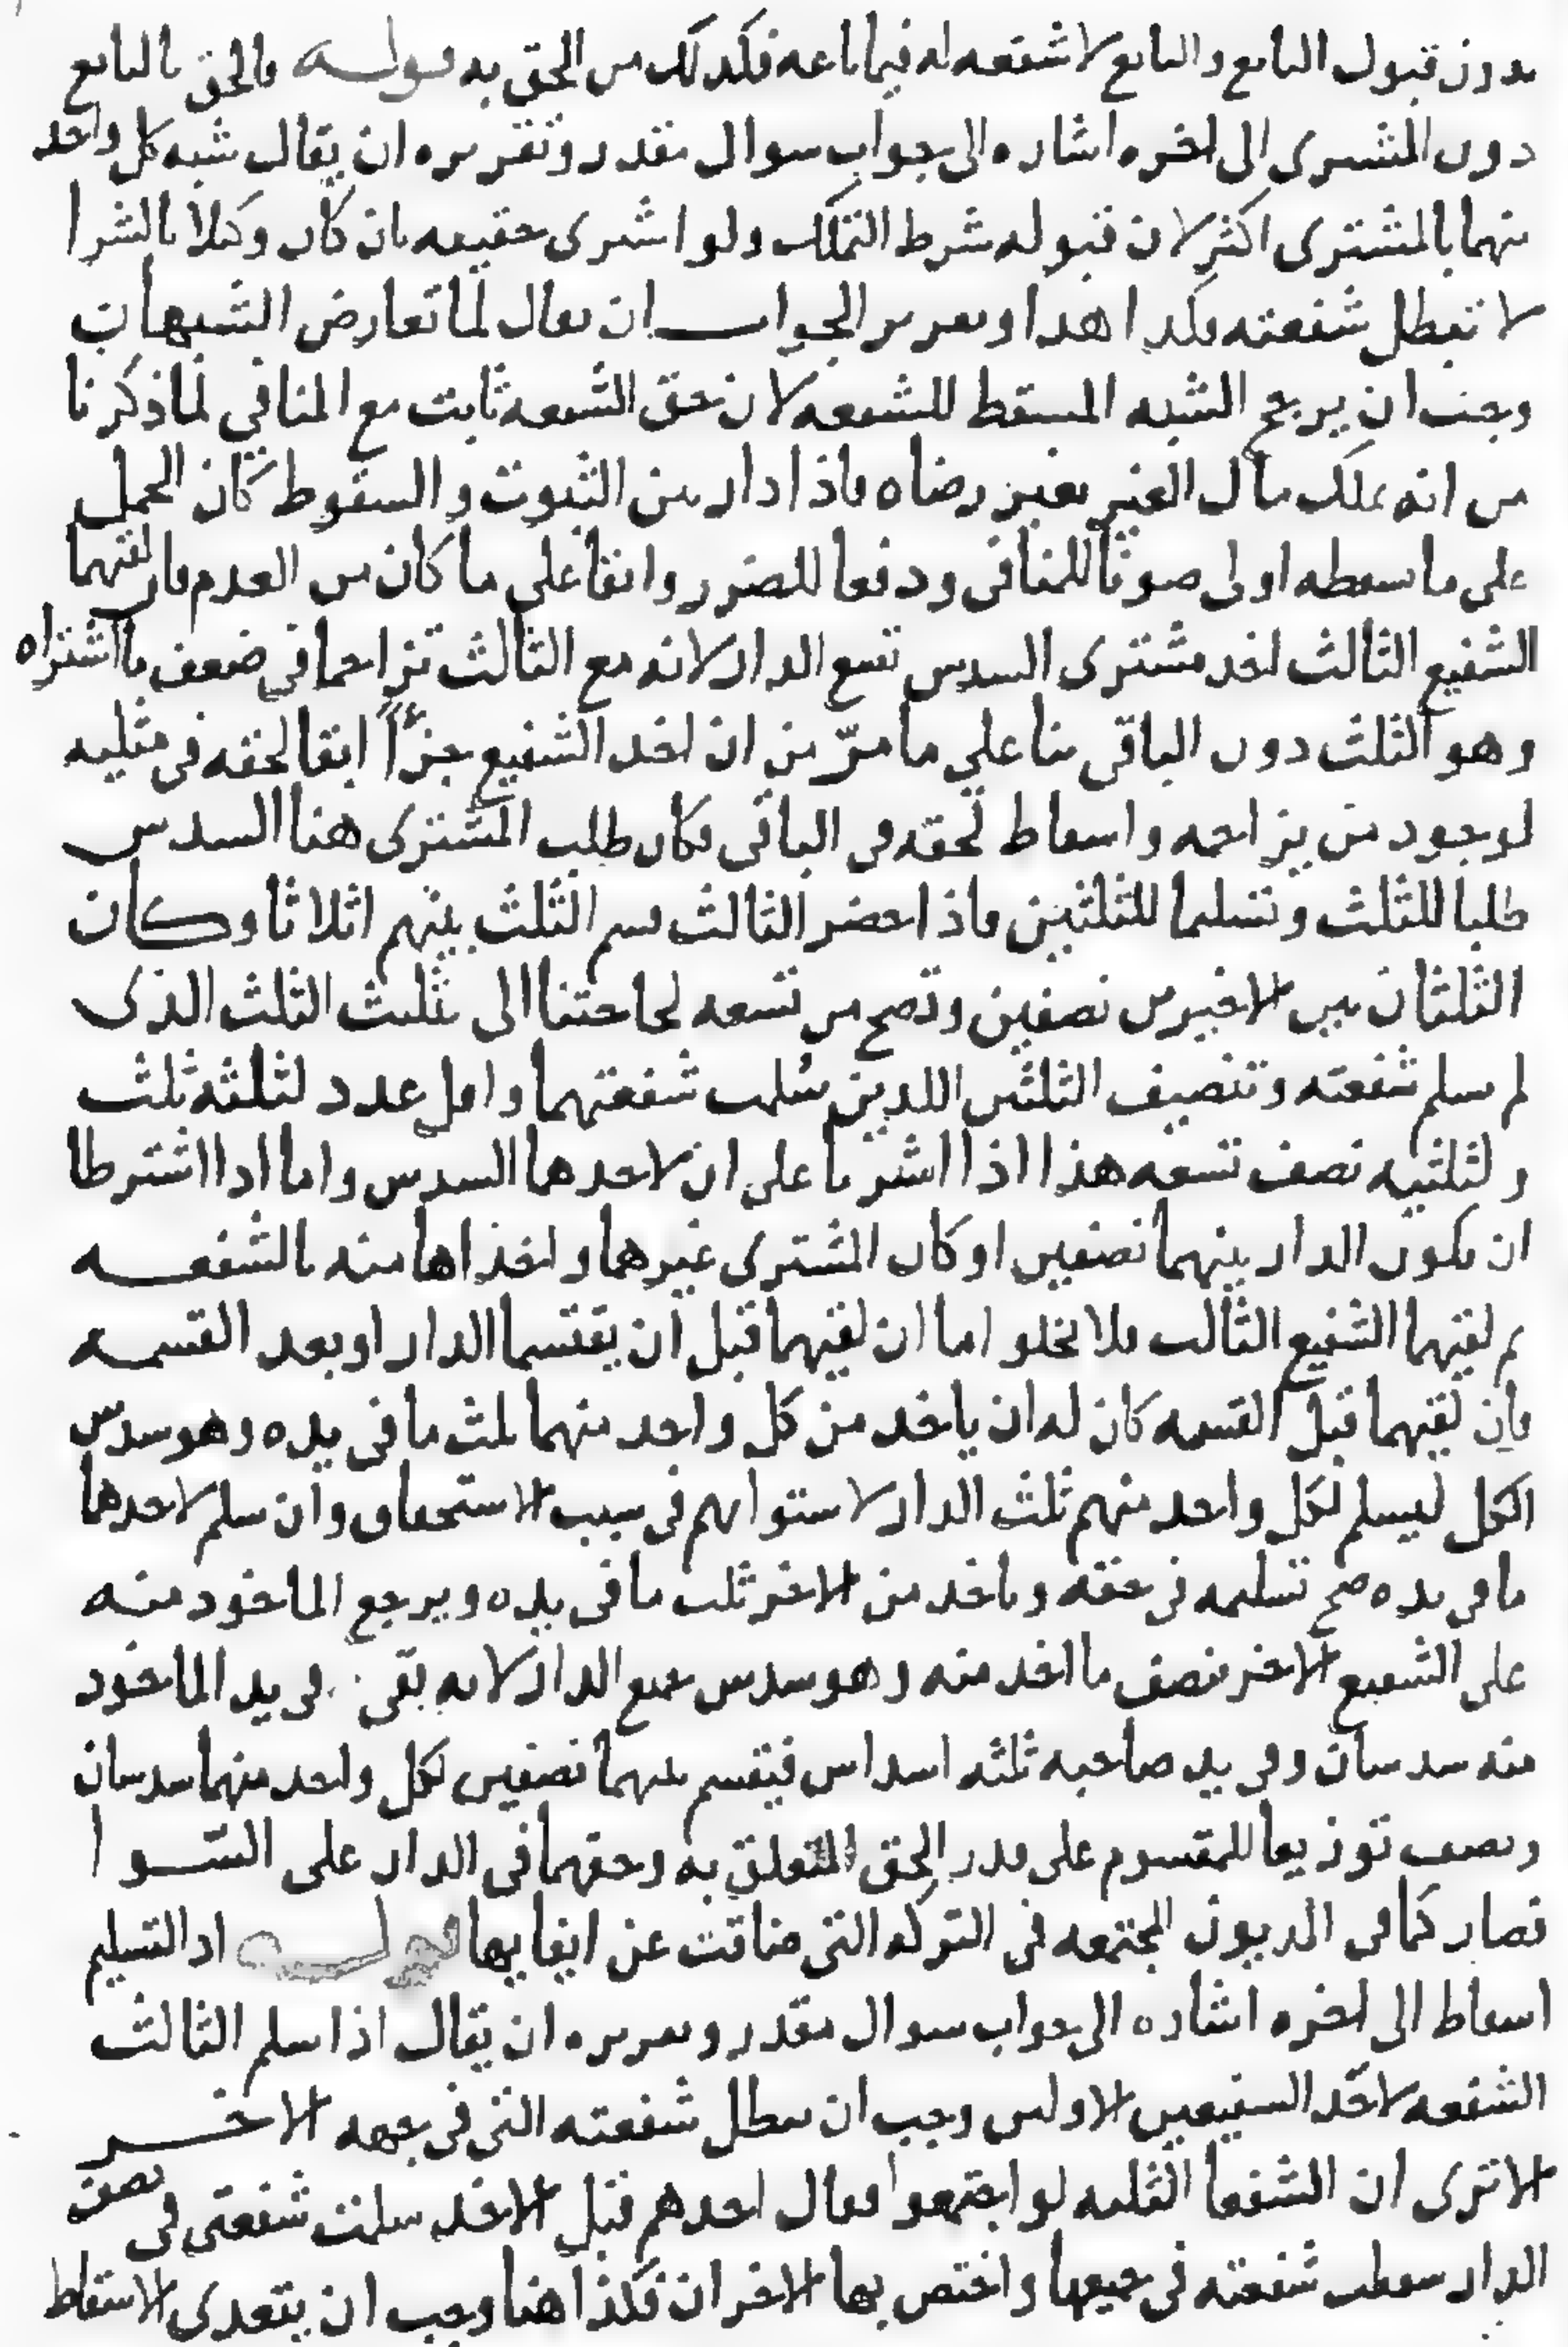 بدون قبول البايع والبايع لا شفعه له فيما باعه فكذلك من الحق به قولـــه فالحق بالبايع
دون المشترى الى اخره اشاره الى جواب سوال مقدر وتقريره ان يقال شبه كل واحد
منهما بالمشترى اكثر لان قبوله شرط التملك ولو اشترى حقيقه بان كان وكيلا بالشرا
لا تبطل شفعته فكذا هذا وتقرير الجواب ان يقال لما تعارض الشبهان
وجب ان يرجح الشبه المسقط للشفعه لان حق الشفعه ثابت مع المنافي لما ذكرنا
من انه تملك مال الغير بغير رضاه فاذا دار بين الثبوت والسقوط كان الحمل
على ما يسقطه اولى صونا للمنافى ودفعا للضرر وابقا على ما كان من العدم فان لقيهما
الشفيع الثالث اخد مشترى السدس تسع الدار لانه مع الثالث تزاحما في ضعف ما اشتراه
وهو الثلث دون الباقى بنا علي ما مرّ من ان اخد الشفيع جزءًا ابقا لحقه فى مثليه
لوجود من يزاحمه واسقاط لحقه فى الباقى فكان طلب المشترى هنا السدس
طلبا للثلث وتسليما للثلثين فاذا حضر الثالث قسم الثلث بينهم اثلاثا وكان
الثلثان بين الاخيرين نصفين وتصح من تسعه لحاجتنا الى تثليث الثلث الذى
لم يسلم شفعته وتنصيف الثلثين اللدين سُلمت شفعتهما واقل عدد لثلثه ثلث
ولثلثيه نصف تسعه هذا اذا اشتريا على ان لاحدهما السدس واما ادا اشترطا
ان يكون الدار بينهما نصفين او كان المشترى غيرهما واخذاها منه بالشفعـــه
ثم لقيهما الشفيع الثالث فلا يخلو اما ان لقيهما قبل ان يقتسما الدار او بعد القسمـه
فان لقيهما قبل القسمه كان له ان ياخد من كل واحد منهما ثلث ما فى يده وهو سدس
الكل ليسلم لكل واحد منهم ثلث الدار لاستوائهم فى سبب الاستحقاق وان سلم لاحدهما
ما فى يده صح تسليمه فى حقه وياخد من الاخر ثلث ما فى يده ويرجع الماخود منـه
على الشفيع الاخر بنصف ما اخد منه وهو سدس جميع الدار لانه بقى فى يد الماخود
منه سدسان وفى يد صاحبه ثلثه اسداس فيقسم بينهما نصفين لكل واحد منهما سدسان
ونصف توزيعا للمقسوم على قدر الحق المتعلق به وحقهما فى الدار على الســـوا
فصار كما فى الديون المجتمعه فى التركه التي ضاقت عن ايفايها قولـــه اد التسليم
اسقاط الى اخره اشاره الى جواب سوال مقدر وتقريره ان يقال اذا سلم الثالث
الشفعه لاحد الشفيعين الاولين وجب ان تبطل شفعته التي فى جهه الاخـــر
الا ترى ان الشفعا الثلثه لو اجتمعوا فقال احدهم قبل الاخد سلمت شفعتى فى نصف
الدار سقطت شفعته فى جميعها واختص بها الاخران فكذا هنا وجب ان يتعدى الاسقاط